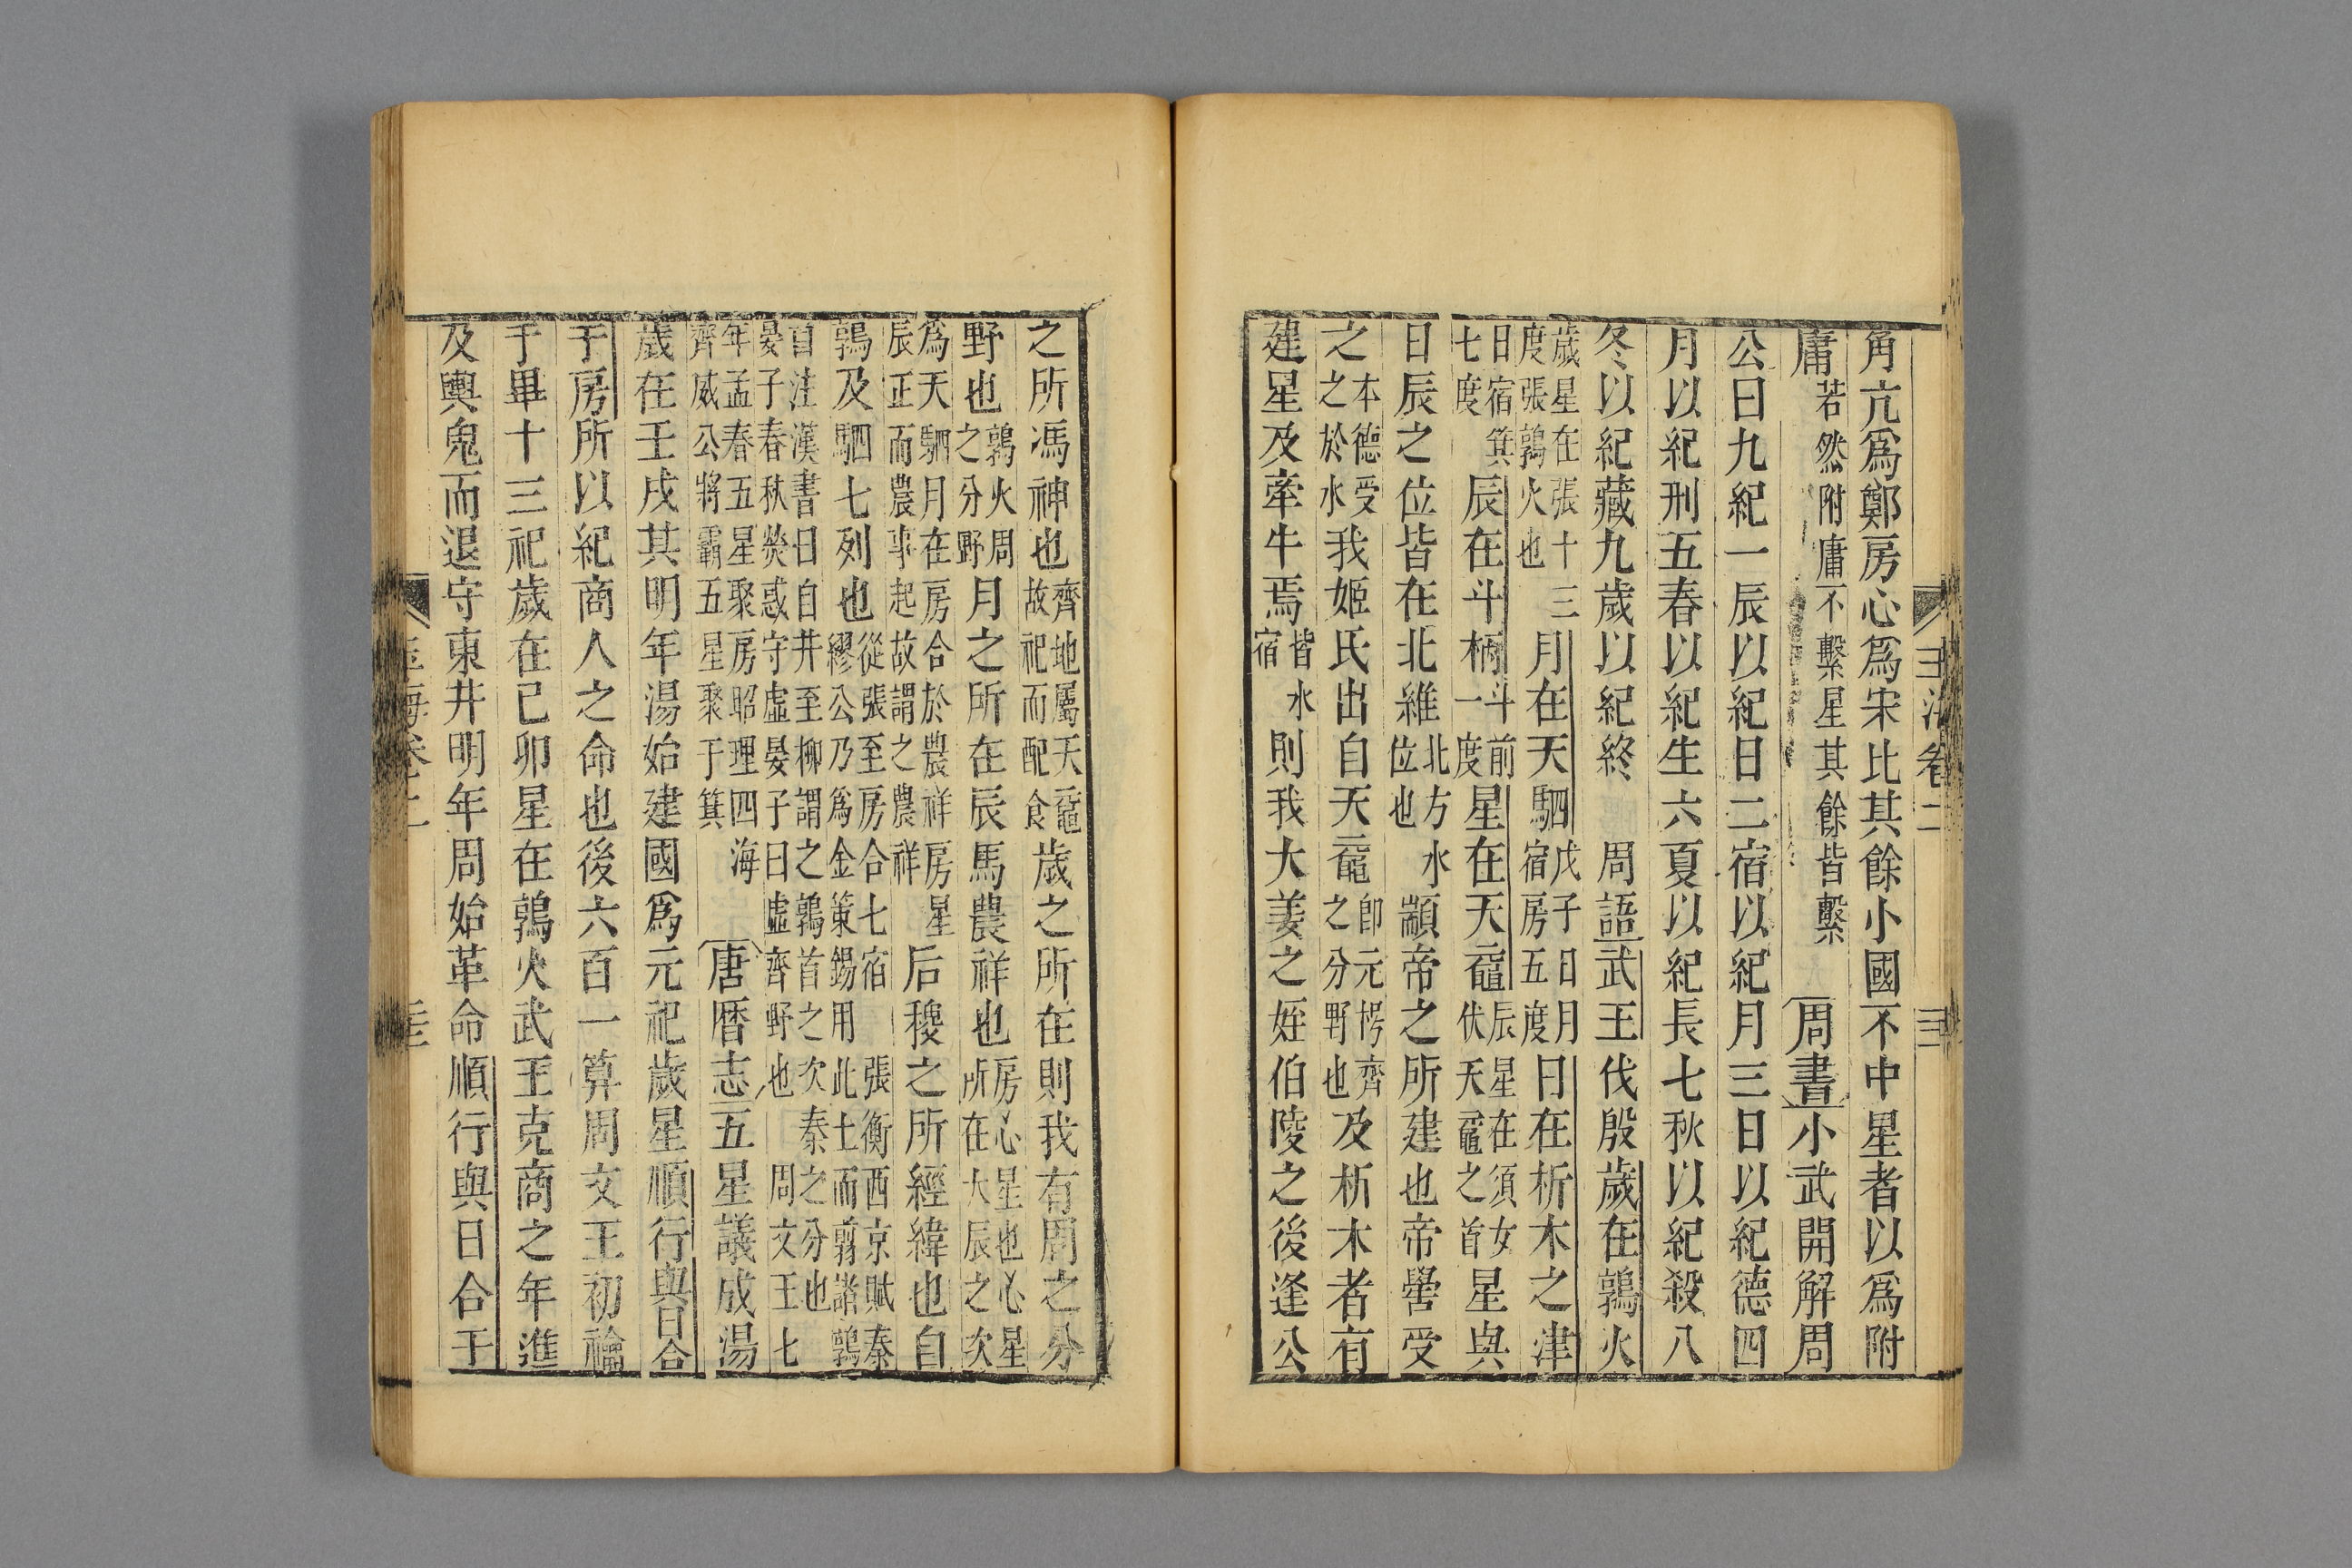 玉海卷二　三
角亢爲鄭房心爲宋比其餘小國不中星者以爲附
庸若然附庸不繫星其餘皆繫周書小武開解周
公曰九紀一辰以紀日二宿以紀月三日以紀德四
月以紀刑五春以紀生六夏以紀長七秋以紀殺八
冬以紀藏九歲以紀終　周語武王伐殷歲在鶉火
歲星在張十三度張鶉火也月在天駟戊子日月宿房五度日在析木之津
日宿箕七度辰在斗柄斗前一度星在天黿辰星在須女伏天黿之首星與
日辰之位皆在北維北方水位也顓帝之所建也帝嚳受
之本德受之於水我姬氏出自天黿卽元枵齊之分野也及析木者有
建星及牽牛焉皆水宿則我大姜之姪伯陵之後逢公
之所馮神也齊地屬天黿故祀而配食歲之所在則我有周之分
野也鶉火周之分野月之所在辰馬農祥也房心星也心星所在大辰之次
爲天駟月在房合於農祥房星辰正而農事起故謂之農祥后稷之所經緯也自
鶉及駟七列也從張至房合七宿　張衡西京賦秦繆公乃爲金策錫用此土而翦諸鶉
首注漢書曰自井至柳謂之鶉首之次秦之分也　晏子春秋熒惑守虛晏子曰虛齊野也　周文王七
年孟春五星聚房昭理四海　齊威公將霸五星聚于箕唐曆志五星議成湯
歲在壬戌其明年湯始建國爲元祀歲星順行與日合
于房所以紀商人之命也後六百一算周文王初禴
于畢十三祀歲在己卯星在鶉火武王克商之年進
及輿鬼而退守東井明年周始革命順行與日合于